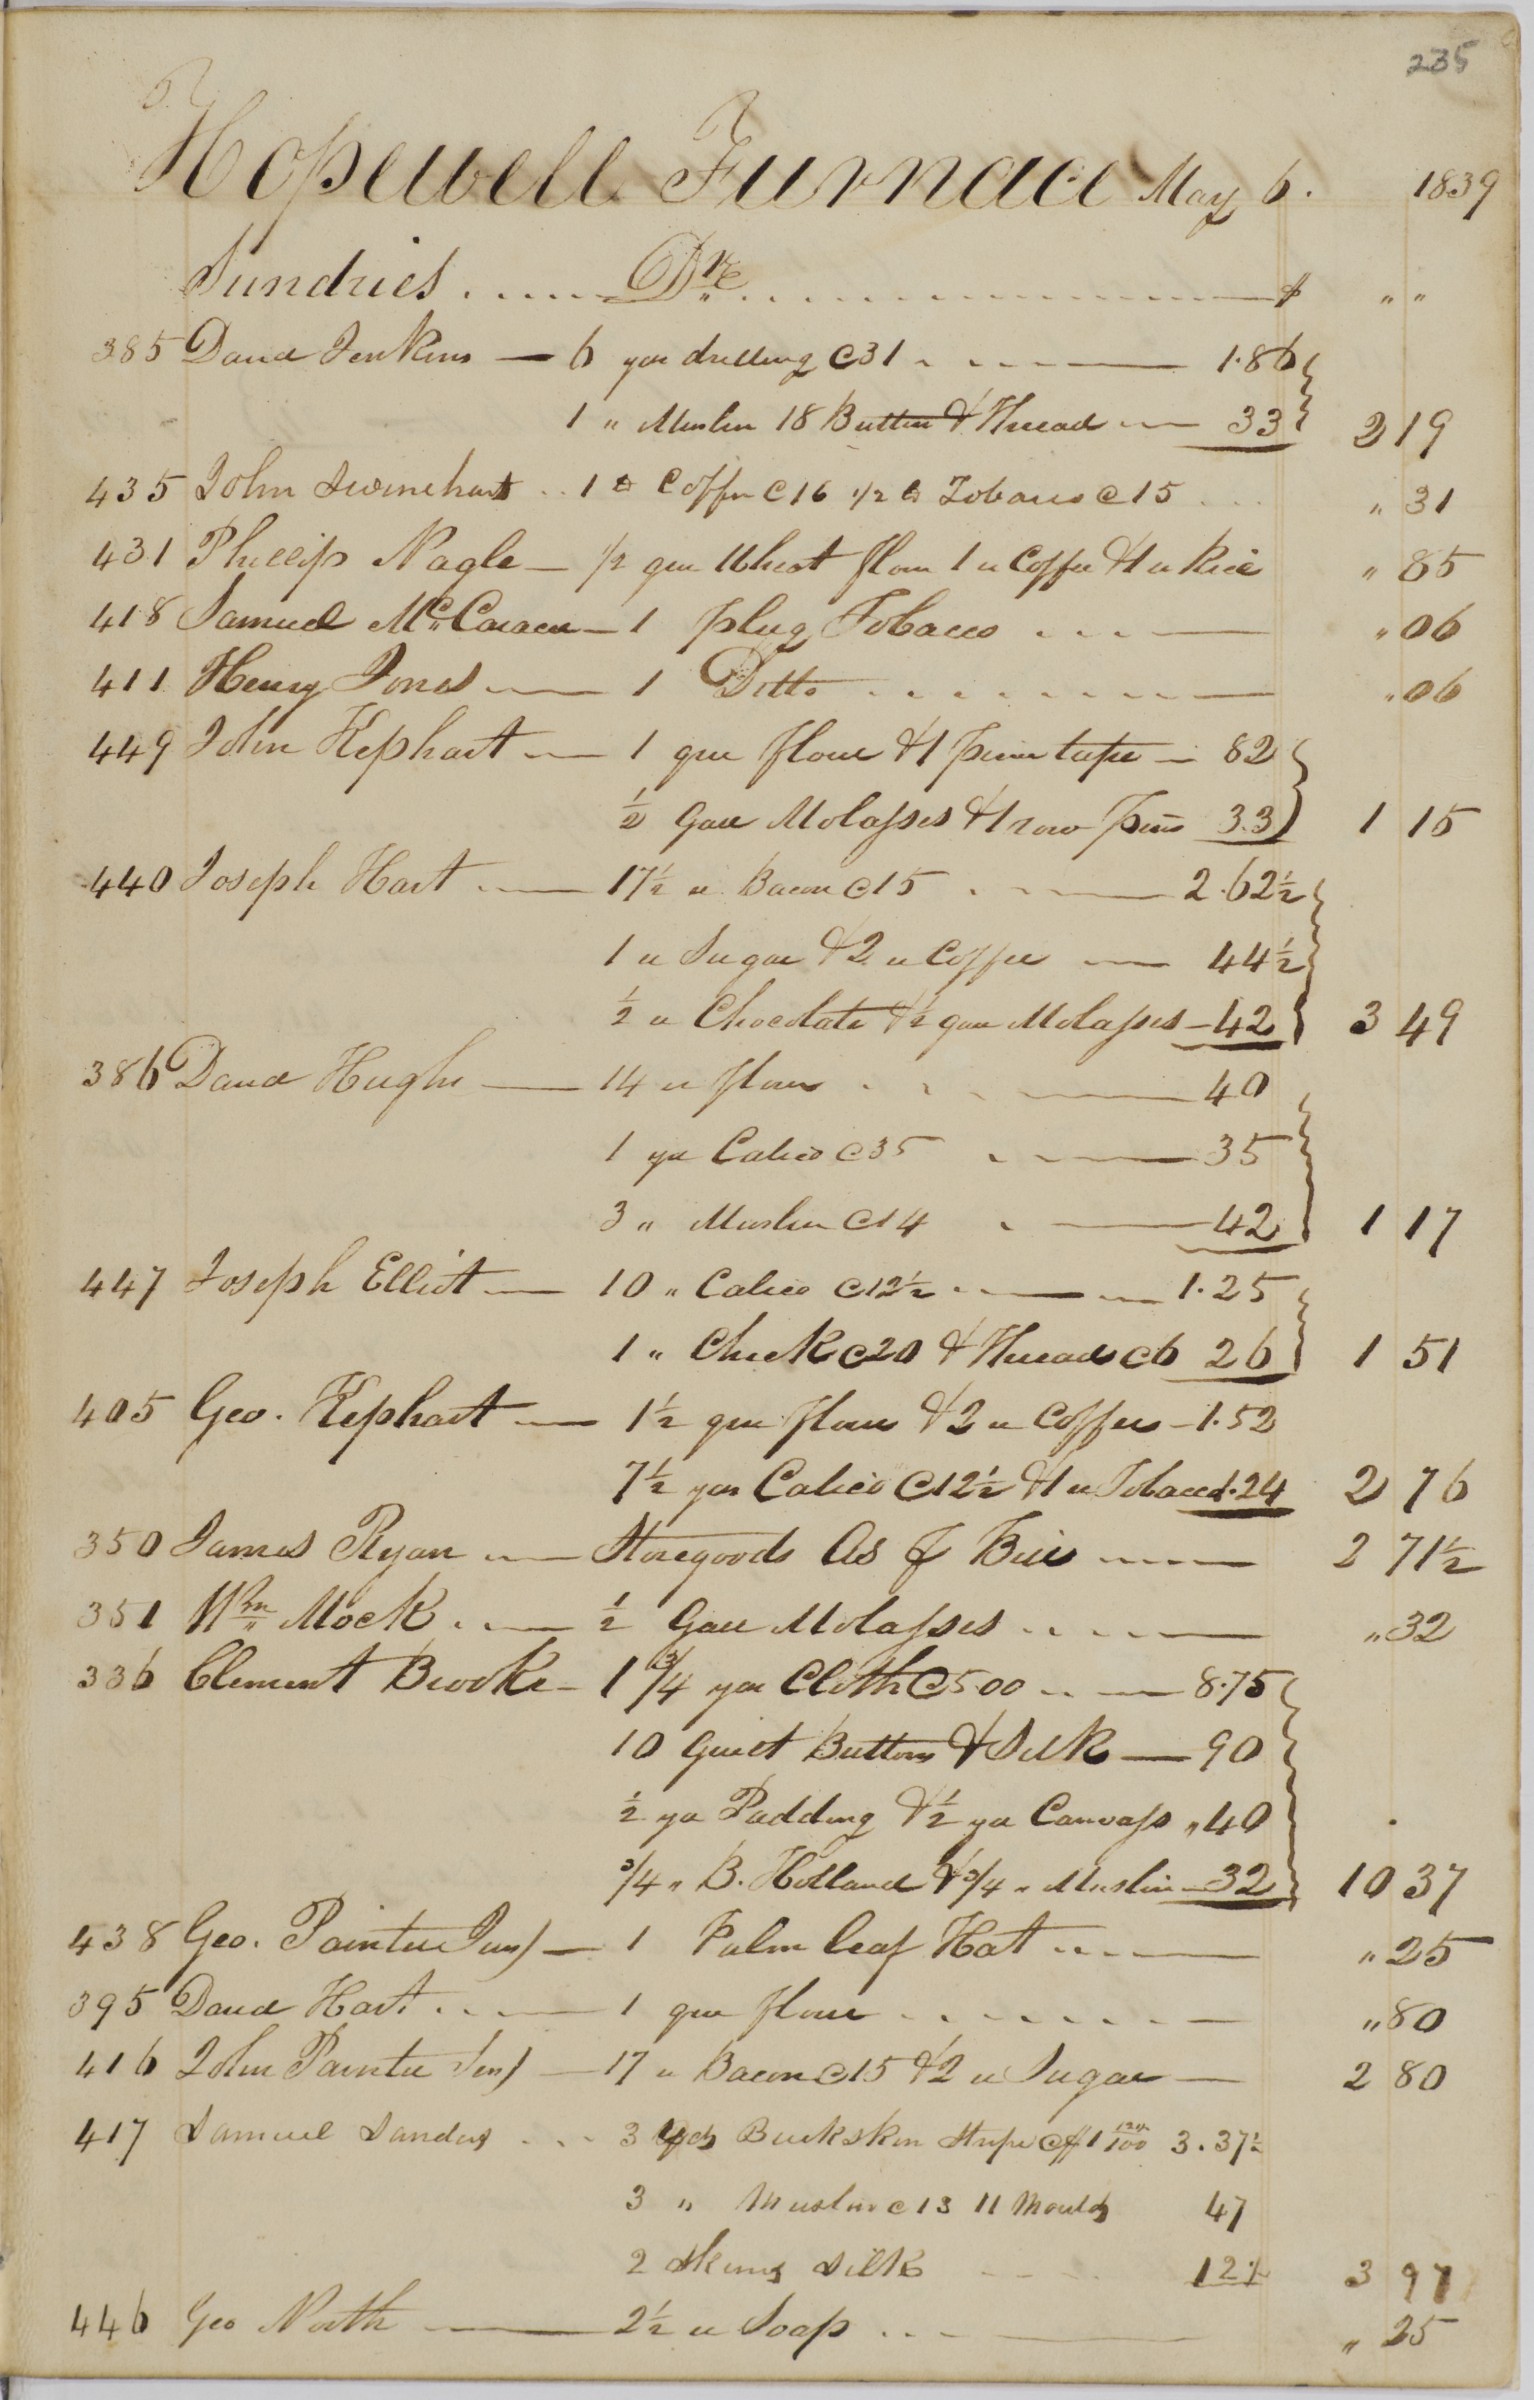 235
Hopewell Furnace May 6. 1839
Sundries ..... Dr. ............... $ " "
385 David Jenkins — 6 yds drilling @31 ... — 1.86
1 " Muslin 18 Button & Thread — 33 2 19
435 John Swinehart .. 1 lb Coffee @16 1/2 lb Tobacco @15 ... " 31
431 Phillip Nagle — 1/2 qr Wheat flour 1 " Coffee & 1 " Rice " 85
418 Samuel McCaraen — 1 plug Tobacco ... — " 06
411 Henry Jones — 1 Ditto ........ — " 06
449 John Kephart — 1 qr flour & 1 piece tape — 82
1/2 Gall Molasses & 1 row Pins 33 1 15
440 Joseph Hart — 17 1/2 " Bacon @15 — 2.62 1/2
1 " Sugar & 2 " Coffee — 44 1/2
1/2 " Chocolate & 1/2 gall Molasses — 42 3 49
386 David Hughs — 14 " flour ... — 40
1 yd Calico @35 — 35
3 " Muslin @14 — 42 1 17
447 Joseph Elliot — 10 " Calico @12 1/2 — 1.25
1 " Check @20 & Thread @6 26 1 51
405 Geo. Kephart — 1 1/2 qr flour & 2 " Coffee — 1.52
7 1/2 yds Calico @12 1/2 & 1 " Tobacco 1.24 2 76
350 James Ryan — Storegoods As Bill — 2 71 1/2
351 Wm Mock ... — 1/2 Gall Molasses .... — " 32
336 Clement Brooke — 1 3/4 yds Cloth @5.00 — 8.75
10 Guilt Buttons & Silk — 90
1/2 yd Padding & 1/2 yd Canvass " 40
3/4 " B. Holland & 3/4 " Muslin — 32 10 37
438 Geo. Painter Junr — 1 Palm leaf Hat ... — " 25
395 David Hart ... — 1 qr flour ....... — " 80
416 John Painter Senr — 17 " Bacon @15 & 2 " Sugar — 2 80
417 Samuel Sands ... 3 Yds Buckskin Stripe @$1 12 1/2/100 3.37 1/2
3 " Muslin @13 11 Moulds 47
2 Skeins Silk 12 1/2 3 97
446 Geo North — 2 1/2 " Soap ... — " 25